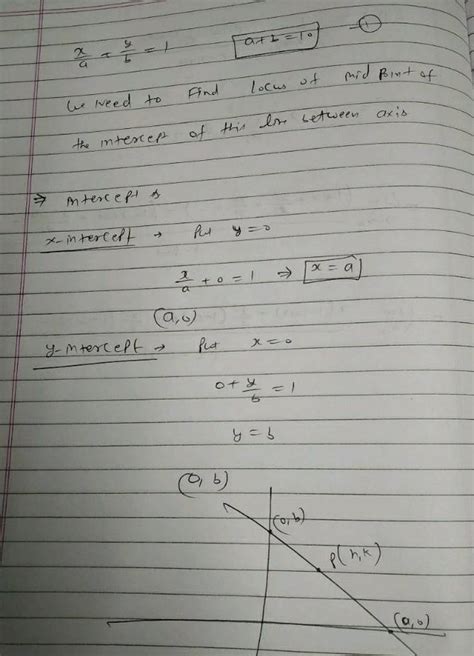 x/a + y/b = 1   a+b=10   ①
We need to Find locus of mid Point of
the intercept of this line between axis
⇒ Intercepts
x-intercept → Put y=0
x/a + 0 = 1 ⇒ x = a
(a,0)
y-intercept → Put x=0
0 + y/b = 1
y = b
(0, b)
(0,b)
P(h,k)
(a,0)